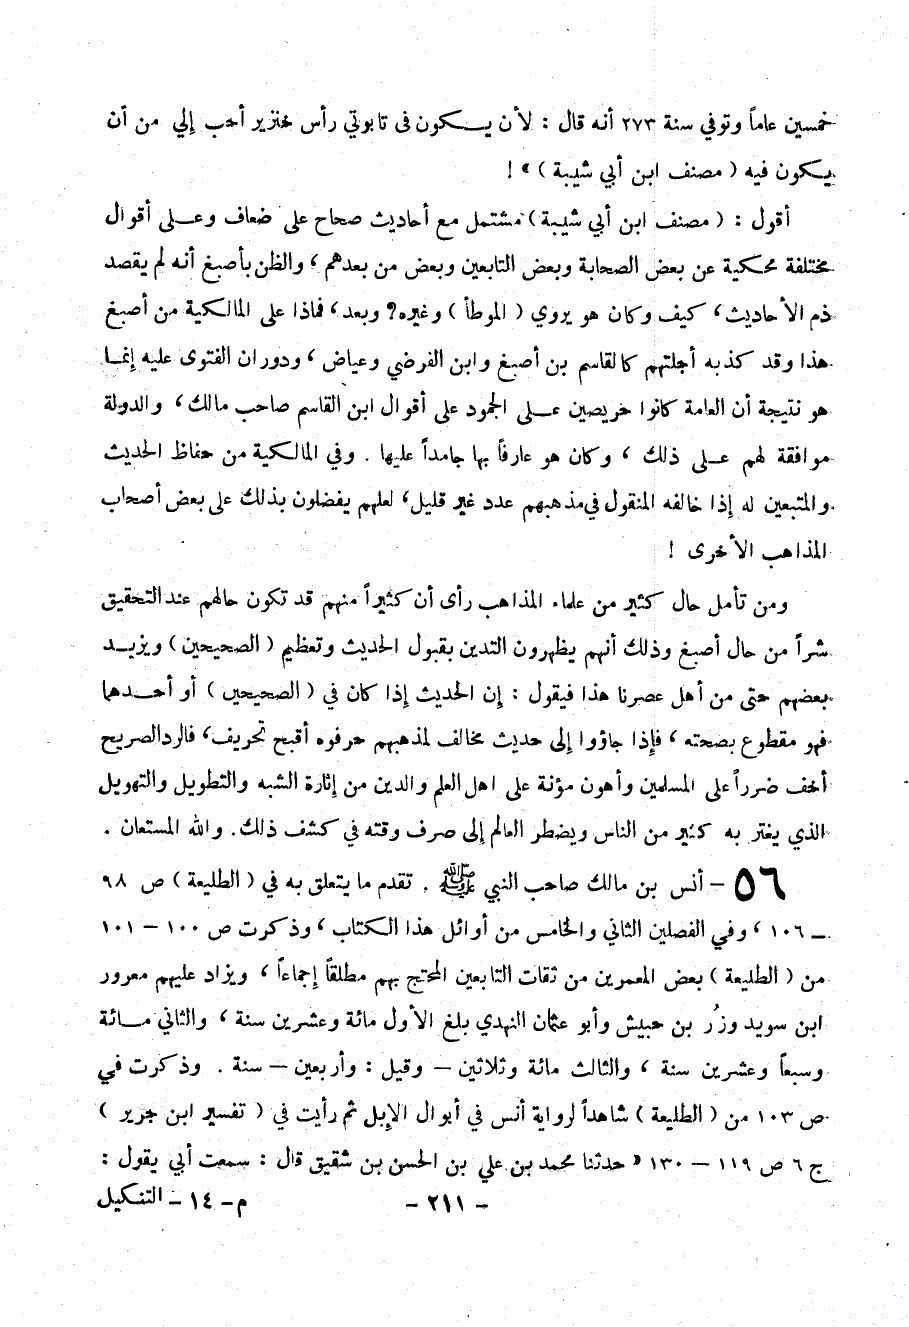 خمسين عاماً وتوفي سنة ٢٧٣ أنه قال : لأن يـكون في تابوتي رأس خنزير أحب إلي من أن
يكون فيه ( مصنف ابن أبي شيبة ) » !
أقول : ( مصنف ابن أبي شيبة ) مشتمل مع أحاديث صحاح على ضعاف وعلى أقوال
مختلفة محكية عن بعض الصحابة وبعض التابعين وبعض من بعدهم ، والظن بأصبغ أنه لم يقصد
ذم الأحاديث ، كيف وكان هو يروي ( الموطأ ) وغيره ؟ وبعد ، فماذا على المالكية من أصبغ
هذا وقد كذبه أجلتهم كالقاسم بن أصبغ وابن الفرضي وعياض ، ودوران الفتوى عليه إنما
هو نتيجة أن العامة كانوا حريصين على الجمود على أقوال ابن القاسم صاحب مالك ، والدولة
موافقة لهم على ذلك ، وكان هو عارفاً بها جامداً عليها . وفي المالكية من حفاظ الحديث
والمتبعين له إذا خالفه المنقول في مذهبهم عدد غير قليل ، لعلهم يفضلون بذلك على بعض أصحاب
المذاهب الأخرى !
ومن تأمل حال كثير من علماء المذاهب رأى أن كثيراً منهم قد تكون حالهم عند التحقيق
شراً من حال أصبغ وذلك أنهم يظهرون التدين بقبول الحديث وتعظيم ( الصحيحين ) ويزيد
بعضهم حتى من أهل عصرنا هذا فيقول : إن الحديث إذا كان في ( الصحيحين ) أو أحدهما
فهو مقطوع بصحته ، فإذا جاؤوا إلى حديث مخالف لمذهبهم حرفوه أقبح تحريف ، فالرد الصريح
أخف ضرراً على المسلمين وأهون مؤنة على اهل العلم والدين من إثارة الشبه والتطويل والتهويل
الذي يغتر به كثير من الناس ويضطر العالم إلى صرف وقته في كشف ذلك . والله المستعان .
٥٦ – أنس بن مالك صاحب النبي ﷺ . تقدم ما يتعلق به في ( الطليعة ) ص ٩٨
– ١٠٦ ، وفي الفصلين الثاني والخامس من أوائل هذا الكتاب ، وذكرت ص ١٠٠ – ١٠١
من ( الطليعة ) بعض المعمرين من ثقات التابعين المحتج بهم مطلقاً إجماعاً ، ويزاد عليهم معرور
ابن سويد وزُر بن حبيش وأبو عثمان النهدي بلغ الأول مائة وعشرين سنة ، والثاني مائة
وسبعاً وعشرين سنة ، والثالث مائة وثلاثين – وقيل : وأربعين – سنة . وذكرت في
ص ١٠٣ من ( الطليعة ) شاهداً لرواية أنس في أبوال الإبل ثم رأيت في ( تفسير ابن جرير )
ج ٦ ص ١١٩ – ١٣٠ « حدثنا محمد بن علي بن الحسن بن شقيق قال : سمعت أبي يقول :
– ٢١١ –
م – ١٤ – التنكيل